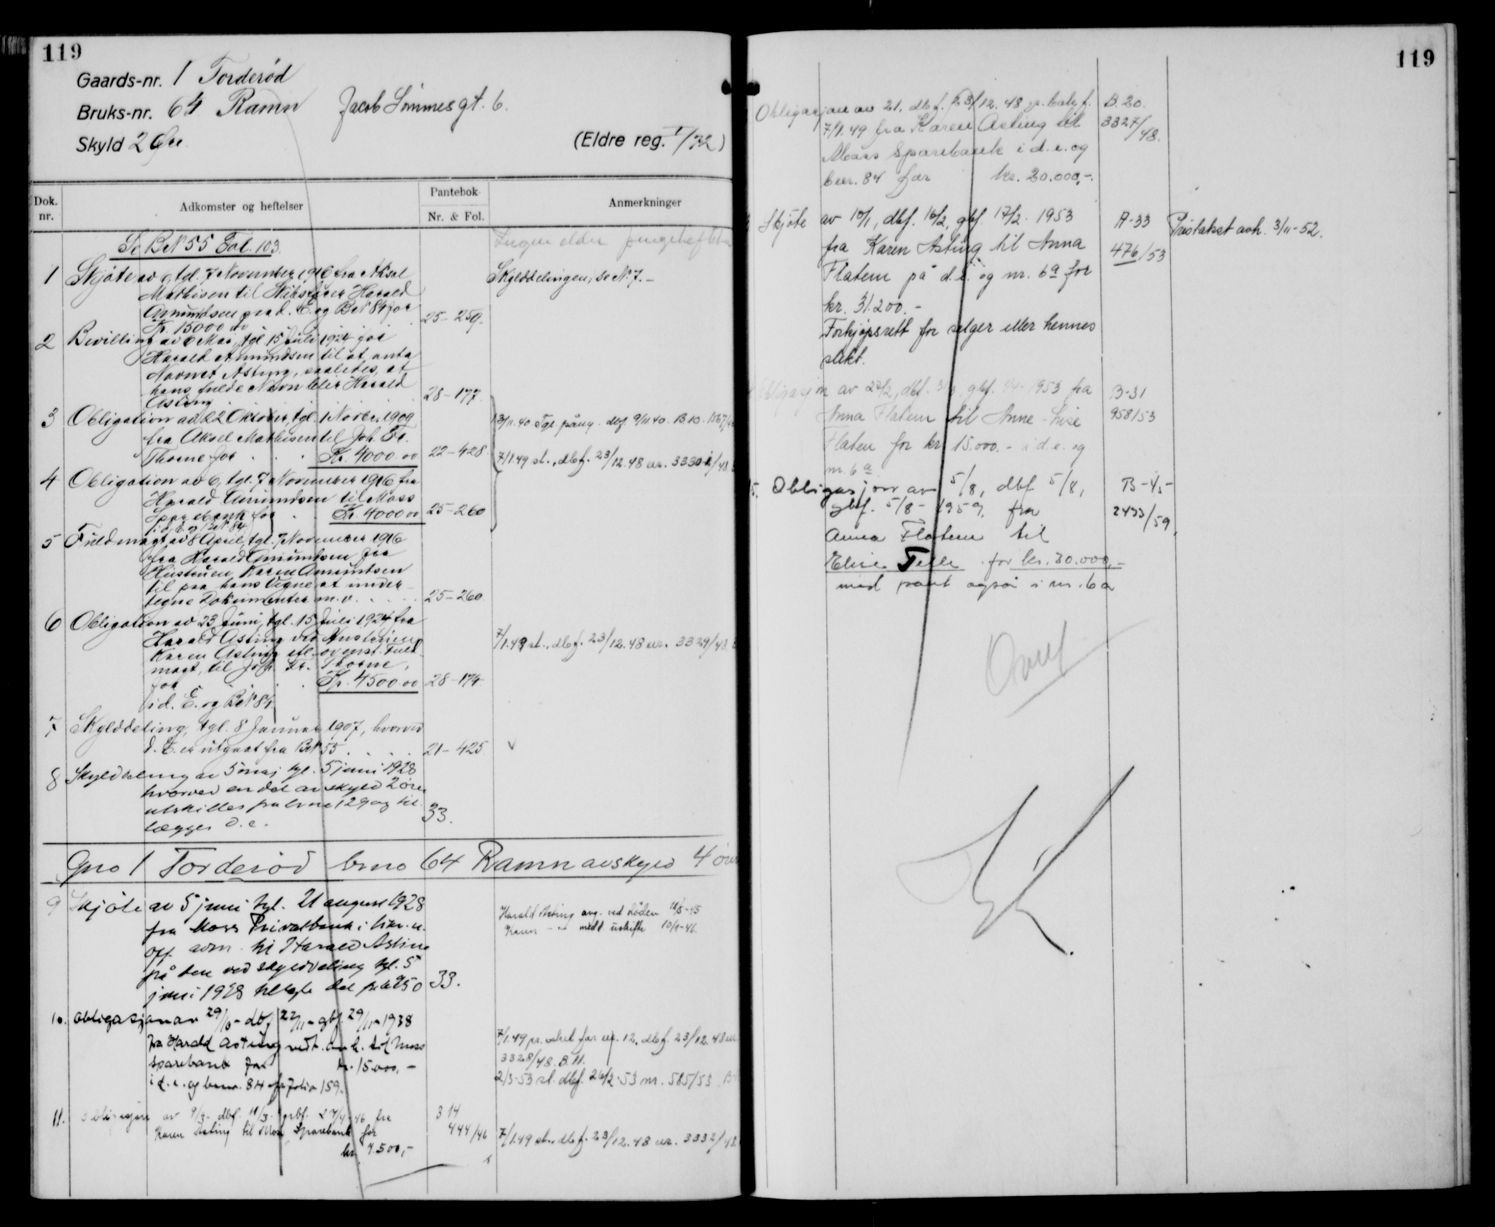 119
Gaards-nr. 1 Torderød
Bruks-nr. 64 Ramn Jacob Sømmesgt. 6.
Skyld 2 Øre.
(Eldre reg. I/32)
Dok. nr.
Adkomster og heftelser
Pantebok
Nr. & Fol.
Anmerkninger
Se BN 55 Fol. 103.
Ingen eldre pengeheftelser
1 Skjøte av 6, tgl. 7 November 1916 fra Aksel
Mathisen til Harald
Amundsen paa d. E. og BN 84 for
Kr. 15000 00
25-259.
Skylddelingen, se N. 7.-
2 Bevilling av 6 Mai, tgl. 15 Juli 1924 for
Harald Amundsen til at anta
Navnet Asting, saaledes, at
hans fulde Navn blir Harald
Asting
28-177.
3 Obligation av 22 Oktober, tgl. 1 Novbr. 1909
fra Aksel Mathisen til Joh. Fr.
Thorne for Kr. 4000.00
22-428
13/11.40 dbf. 9/11 40. B 10.
7/1.49 sl., dbf. 23/12.48 nr. 3330
4 Obligation av 6, tgl. 7 November 1916 fra
Harald Amundsen til Moss
Sparebank for Kr. 4000 00
i d. E. og BN 84
25-260
5 Fuldmagt av 8 April, tgl. 7 November 1916
fra Harald Amundsen for
Hustruen Karen Amundsen
til paa hans Vegne at under-
tegne Dokumenter m.v.
25-260
6 Obligation av 23 Juni, tgl. 15 Juli 1924 fra
Harald Asting ved Hustruen
Karen Asting efl. ovenst. Fuld-
magt, til Joh. Fr. Thorne,
for Kr. 4500.00
i d. E. og BN 84
28-174
7/1.49 sl., dbf. 23/12.48 nr. 3329/48
7 Skylddeling, tgl. 8 Januar 1907, hvorved
d. E. er utgaat fra BN 55
21-425
8 Skylddeling av 5 mai tgl. 5 juni 1928
hvorved en del av skyld 2 øre
utskilles fra bno 129 og til
lægges d.e.
33.
Gno 1 Torderød bno 64 Ramn avskyld 4 øre
9 Skjøte av 5 juni tgl. 21 august 1928
fra Moss Privatbank i likv. u.
off. adm. til Harald Asting
på den ved skylddeling tgl. 5
juni 1928 tillagte del for kr 250
33.
Harald Asting avg. ved døden
Karen medd. uskifte
10. Obligasjon av 29/10- dbf 22/11- gbf. 29/11-1938
fra Harald Asting til Moss
Sparebank for kr. 15000,-
i d. e. og bnr. 84 folio 159.
7/1.49 pr. veket for nr. 12, dbf. 23/12.48 nr.
3328/48. B 11.
2/3-53 sl. dbf. 26/2-53 nr. 585/53
11. Obligasjon av 9/3- dbf. 11/3- gbf. 46 fra
Karen Asting til Moss Sparebank for
kr. 4.500,-
314
444/46
7/1.49 slr. dbf. 23/12.48 nr. 3332/48
119
Obligasjon av 21. dbf. 23/12.48 gr. bokf.
7/1.49 fra Karen Asting til
Moss Sparebank i d.e. og
bnr. 84 for kr. 20.000,-.
B. 20.
3327/48.
Skjøte av 10/1, dbf. 16/2, gbf. 17/2. 1953
fra Karen Asting til Anna
Flatem på d.e. og nr. 6a for
kr. 31.200.-
Forkjøpsrett for selger eller hennes
slekt.
A-33
476/53
Pristakst avh. 3/11-52.
Obligasjon av 28/2, dbf. gbf. 1953 fra
Anna Flatem til Anne-Lise
Flatem for kr 15.000.- i d.e. og
nr. 6a
B-31
958/53
5. Obligasjon av 5/8, dbf 5/8,
gbf. 5/8-1959, fra
Anna Flatem til
Elise for kr. 30.000,-
med pant også i nr. 6a
B-45-
2433/59,
Overf